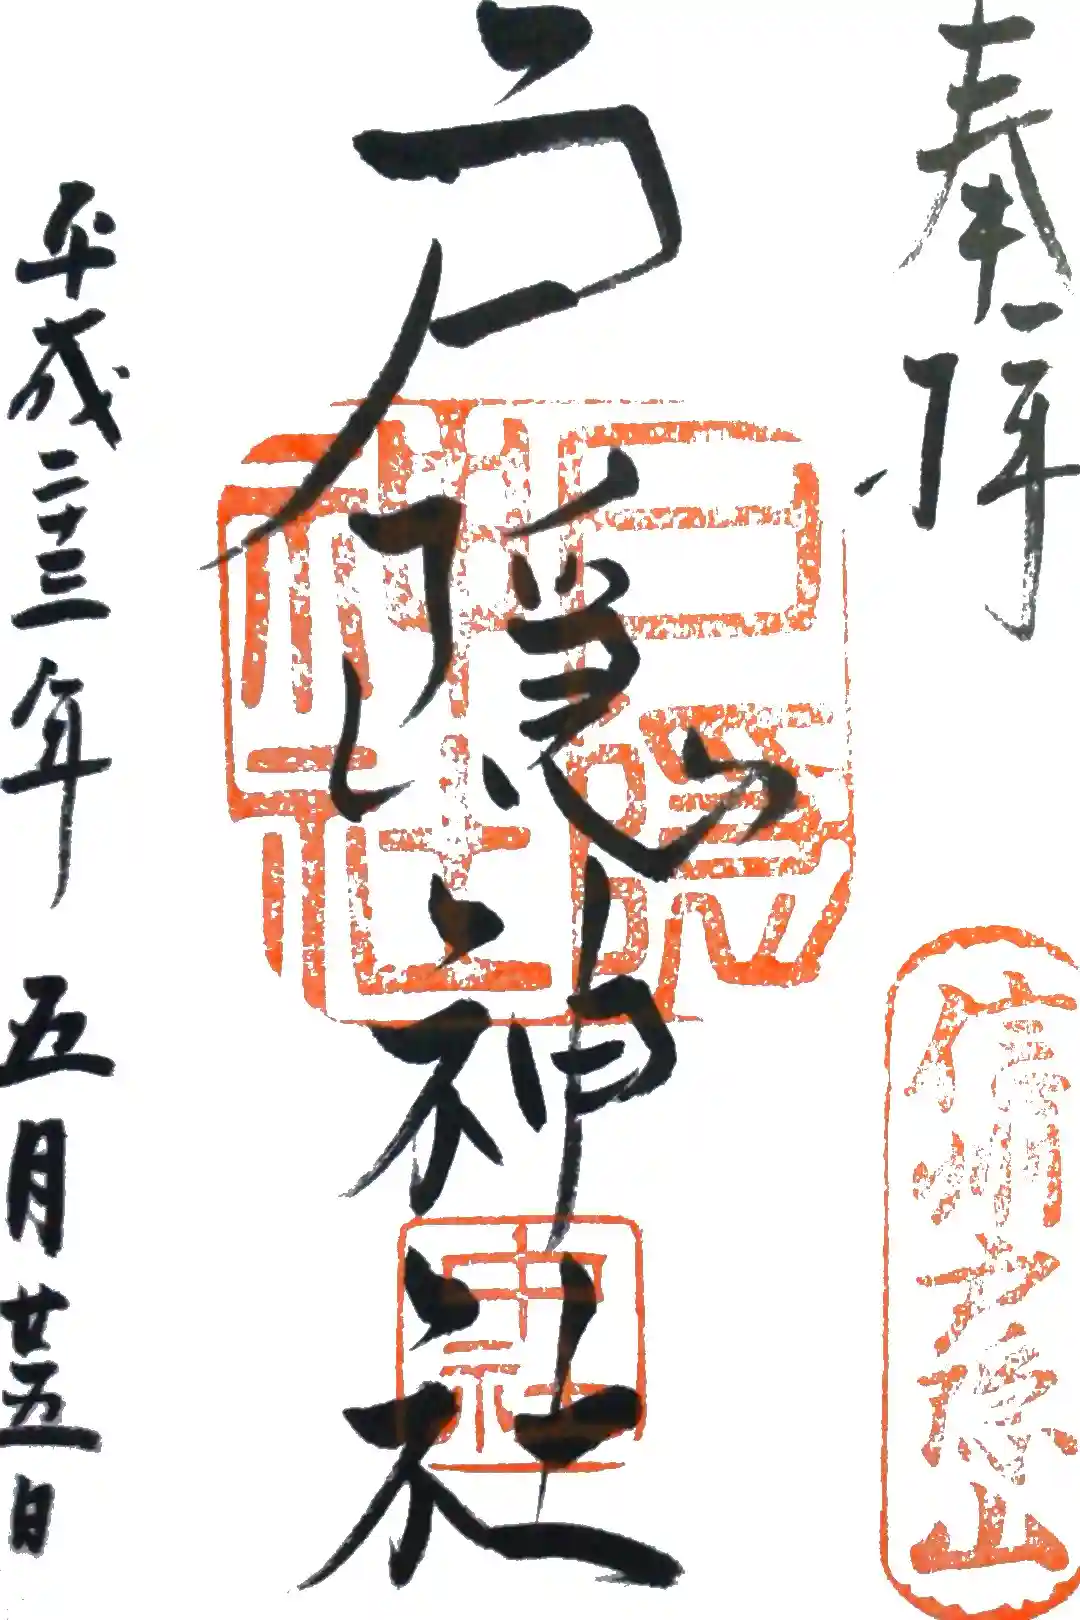 奉拝
信州戸隠山
戸隠神社
戸隠神社
中社
平成二十三年 五月廿五日